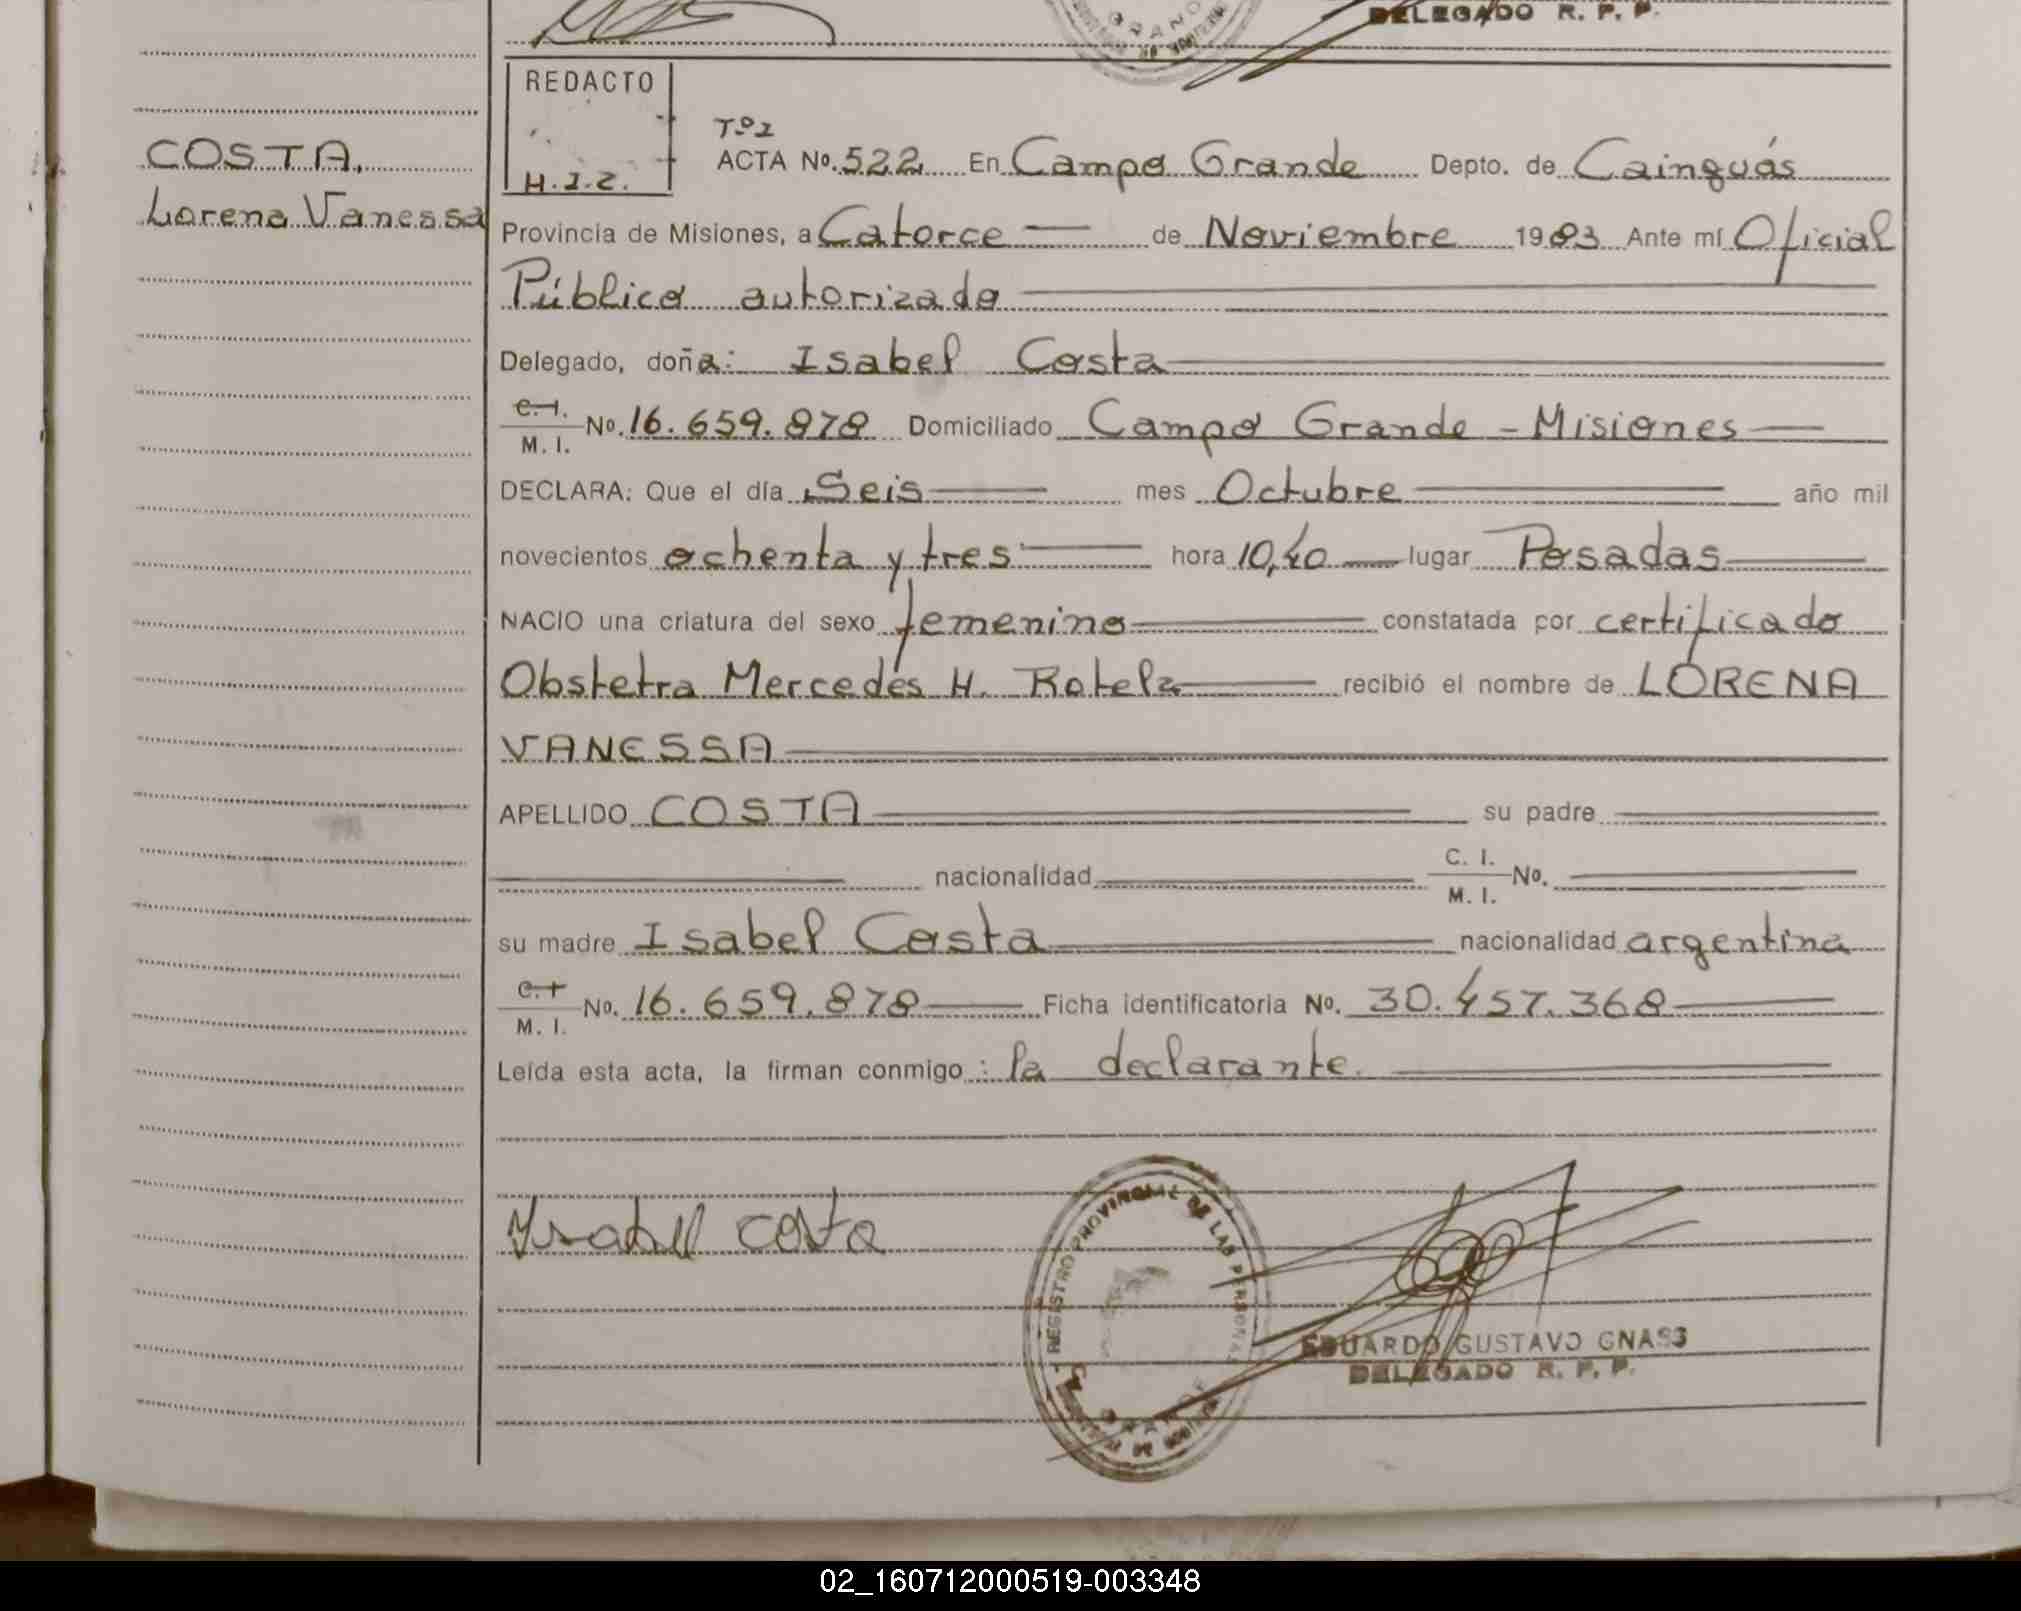 DELEGADO R. P. P.
GRANDE
REDACTO
H.J.Z.
COSTA,
Lorena Vanessa
Tº2
ACTA Nº. 522 En Campo Grande Depto. de Cainguás
Provincia de Misiones, a Catorce — de Noviembre 1983 Ante mí Oficial
Público autorizado
Delegado, doña: Isabel Costa
C.I. M. I. Nº. 16.659.878 Domiciliado Campo Grande - Misiones
DECLARA: Que el día Seis mes Octubre año mil
novecientos ochenta y tres hora 10,40 lugar Posadas
NACIO una criatura del sexo femenino constatada por certificado
Obstetra Mercedes H. Rotela recibió el nombre de LORENA
VANESSA
APELLIDO COSTA su padre
nacionalidad C. I. M. I. Nº.
su madre Isabel Costa nacionalidad argentina
C.I. M. I. Nº. 16.659.878 Ficha identificatoria Nº. 30.457.368
Leída esta acta, la firman conmigo : la declarante.
Ysabel costa
REGISTRO PROVINCIAL DE LAS PERSONAS
EDUARDO GUSTAVO GNASS
DELEGADO R. P. P.
02_160712000519-003348